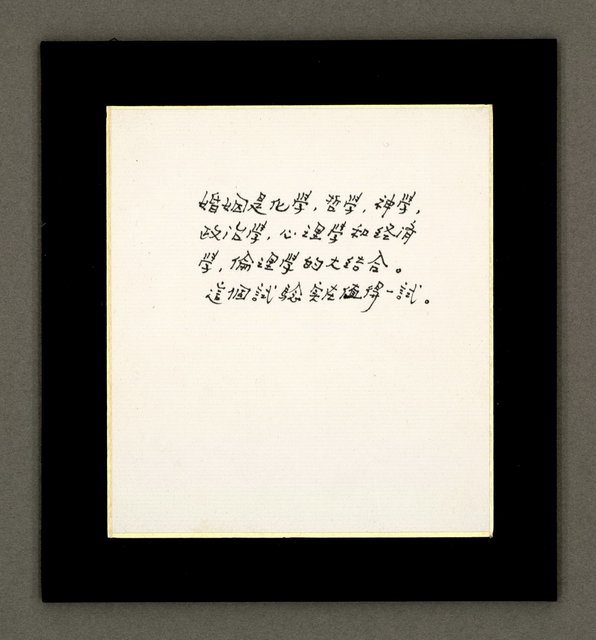 婚姻是化學,哲學,神學,
政治學,心理學和經濟
學,倫理學的大結合。
這個試驗實在值得一試。